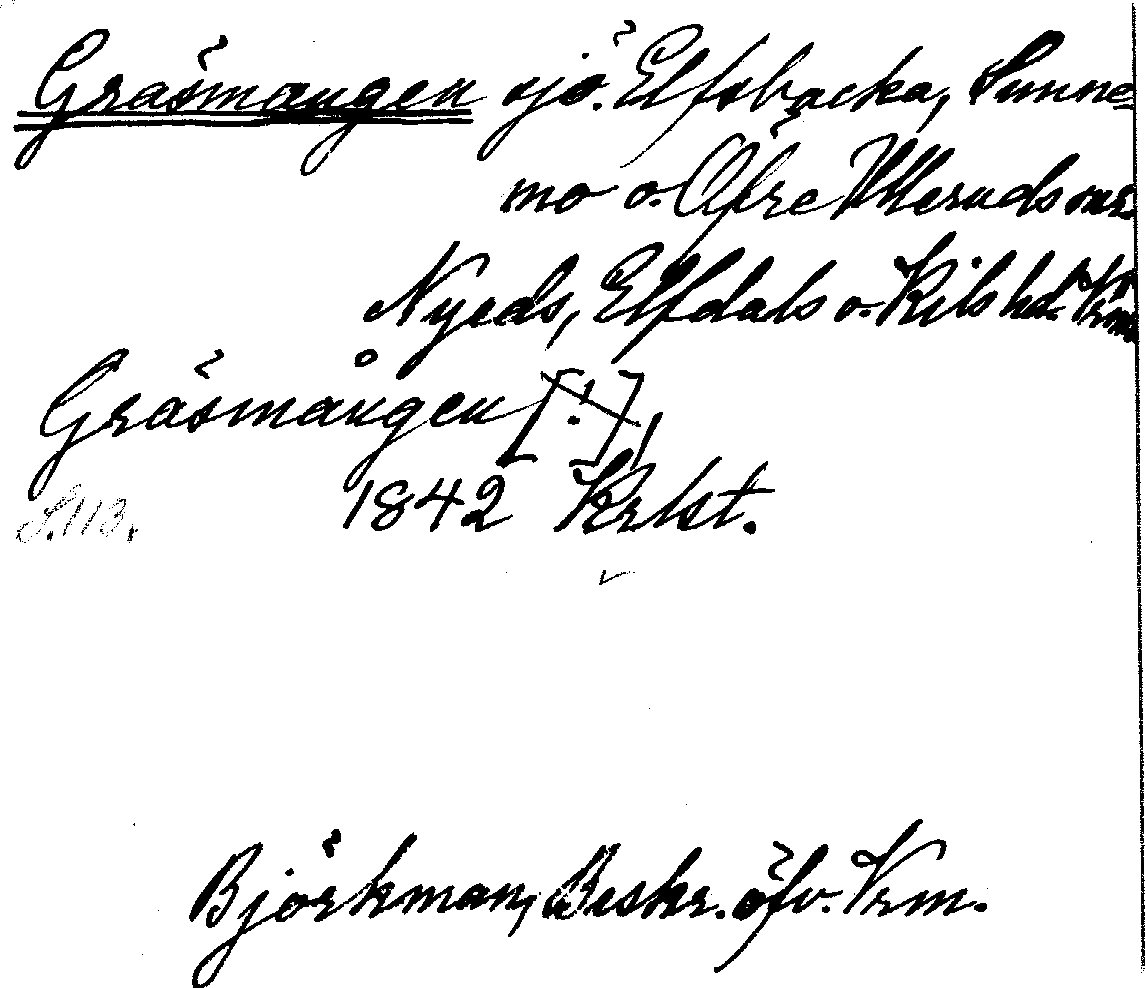 Gräsmangen sjö. Elfsbacka, Sunne-
mo o. Öfre Ulleruds snr
Nyeds, Elfdals o. Kils hd. Vrm
Gräsmången [!],
S. 113. 1842 Krlst.
Björkman, Beskr. öfv. Vrm.